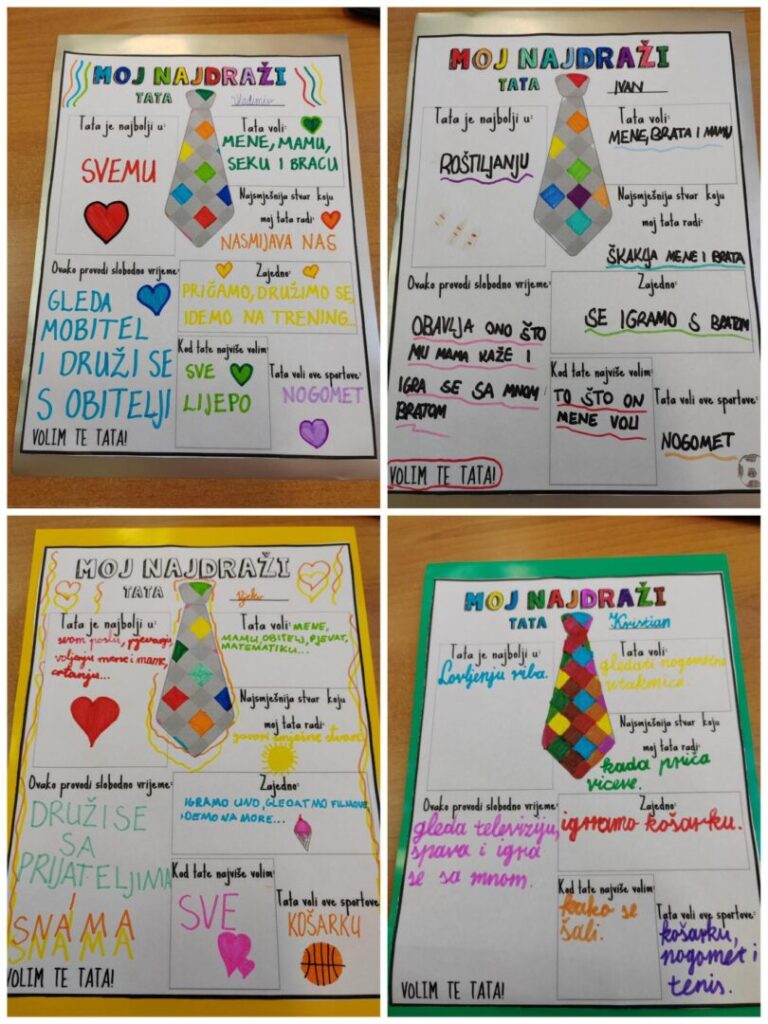 MOJ NAJDRAŽI
TATA Vladimir
Tata je najbolji u:
SVEMU
Tata voli:
MENE, MAMU,
SEKU I BRACU
Najsmješnija stvar koju
moj tata radi:
NASMIJAVA NAS
Ovako provodi slobodno vrijeme:
GLEDA
MOBITEL
I DRUŽI SE
S OBITELJI
Zajedno:
PRIČAMO, DRUŽIMO SE,
IDEMO NA TRENING...
Kod tate najviše volim:
SVE
LIJEPO
Tata voli ove sportove:
NOGOMET
VOLIM TE TATA!
MOJ NAJDRAŽI
TATA IVAN
Tata je najbolji u:
ROŠTILJANJU
Tata voli:
MENE, BRATA I MAMU
Najsmješnija stvar koju
moj tata radi:
ŠKAKLJA MENE I BRATA
Ovako provodi slobodno vrijeme:
OBAVLJA ONO ŠTO
MU MAMA KAŽE I
IGRA SE SA MNOM I
BRATOM
Zajedno:
SE IGRAMO S BRATOM
Kod tate najviše volim:
TO ŠTO ON
MENE VOLI
Tata voli ove sportove:
NOGOMET
VOLIM TE TATA!
MOJ NAJDRAŽI
TATA
Tata je najbolji u:
svom poslu, pjevanju,
voljenju mene i mame,
crtanju...
Tata voli: MENE,
MAMU, OBITELJ, PJEVAT,
MATEMATIKU...
Najsmješnija stvar koju
moj tata radi:
govori smiješne stvari
Ovako provodi slobodno vrijeme:
DRUŽI SE
SA
PRIJATELJIMA
I
S NAMA
Zajedno:
IGRAMO UNO, GLEDAMO FILMOVE,
IDEMO NA MORE...
Kod tate najviše volim:
SVE
Tata voli ove sportove:
KOŠARKU
VOLIM TE TATA!
MOJ NAJDRAŽI
TATA Kristian
Tata je najbolji u:
Lovljenju riba.
Tata voli:
gledati nogometne
utakmice.
Najsmješnija stvar koju
moj tata radi:
kada priča
viceve.
Ovako provodi slobodno vrijeme:
gleda televiziju,
spava i igra
se sa mnom.
Zajedno:
igramo košarku.
Kod tate najviše volim:
kako se
šali.
Tata voli ove sportove:
košarku,
nogomet i
tenis.
VOLIM TE TATA!